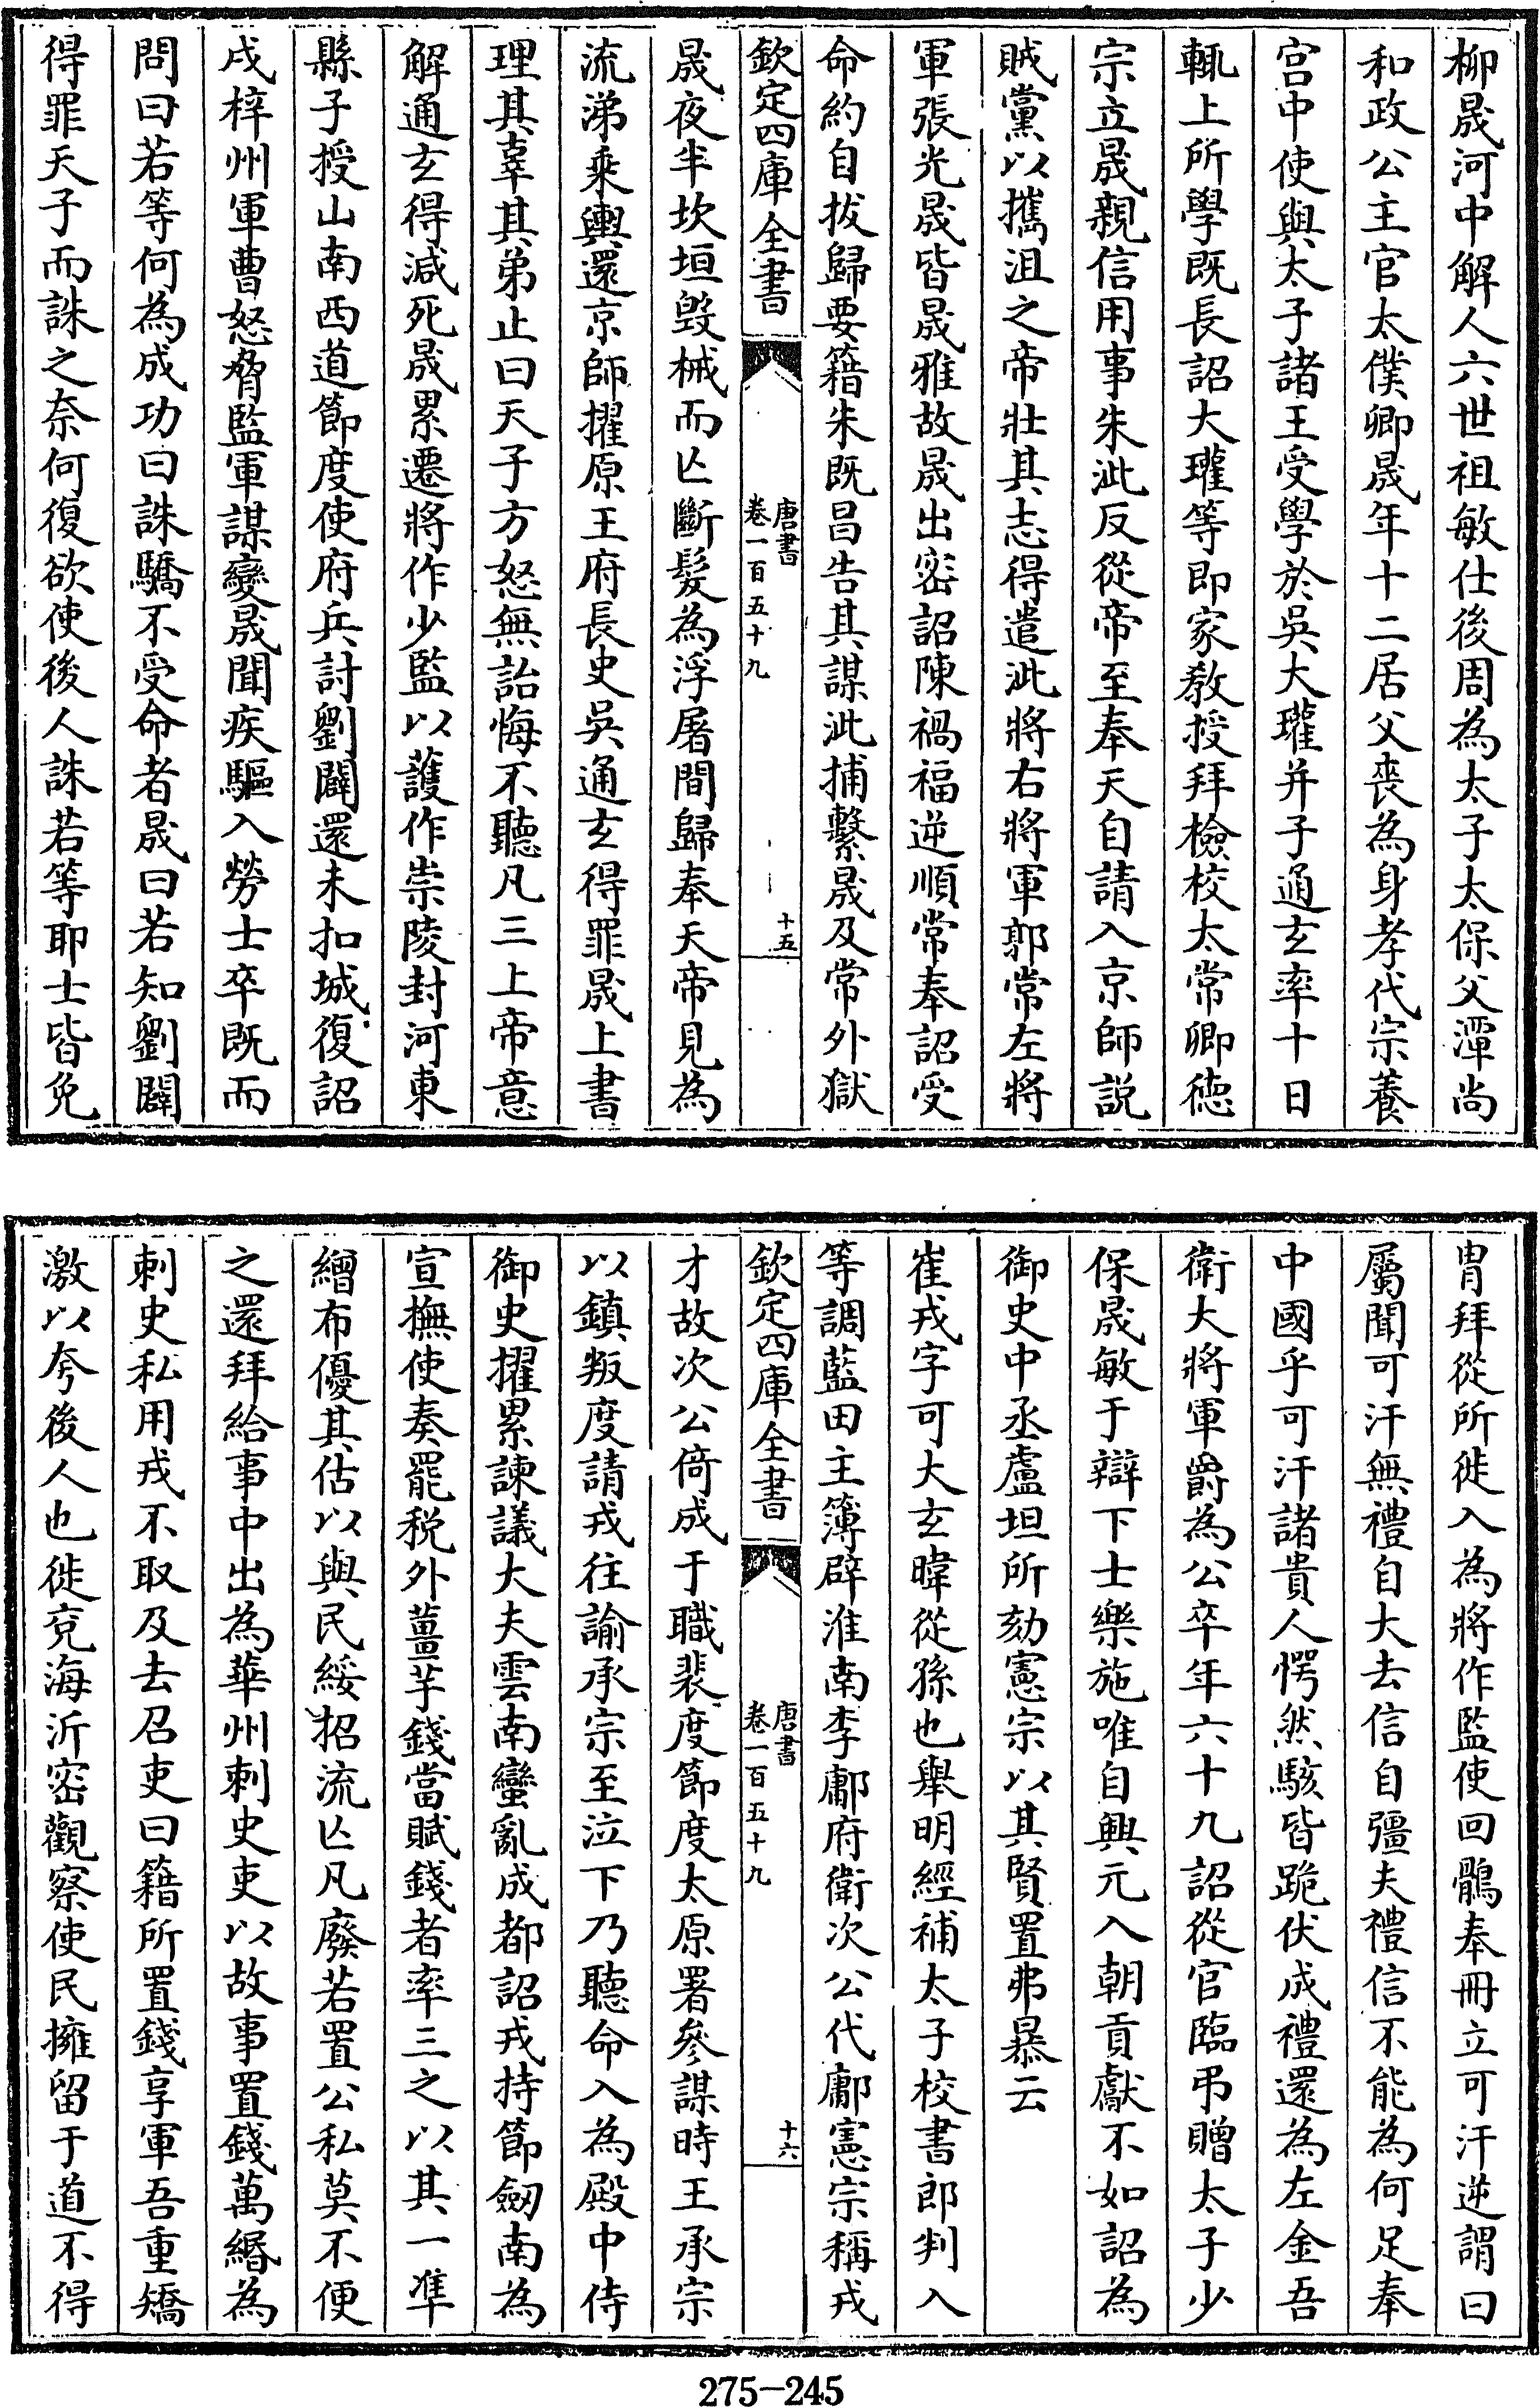 柳晟河中解人六世祖敏仕後周為太子太保父潭尚
和政公主官太僕卿晟年十二居父喪為身孝代宗養
宫中使與太子諸王受學於吳大瓘并子通玄率十日
輒上所學既長詔大瓘等即家教授拜檢校太常卿德
宗立晟親信用事朱泚反從帝至奉天自請入京師説
賊黨以攜沮之帝壯其志得遣泚將右將軍郭常左將
軍張光晟皆晟雅故晟出密詔陳禍福逆順常奉詔受
命約自拔歸要籍朱既昌告其謀泚捕繫晟及常外獄
欽定四庫全書
唐書
卷一百五十九
十五
晟夜半坎垣毁械而亡斷髮為浮屠間歸奉天帝見為
流涕乘輿還京師擢原王府長史吳通玄得罪晟上書
理其辜其弟止曰天子方怒無詒悔不聽凡三上帝意
解通玄得減死晟累遷將作少監以護作崇陵封河東
縣子授山南西道節度使府兵討劉闢還未扣城復詔
戍梓州軍曹怒脅監軍謀變晟聞疾驅入勞士卒既而
問曰若等何為成功曰誅驕不受命者晟曰若知劉闢
得罪天子而誅之奈何復欲使後人誅若等耶士皆免
胄拜從所徙入為將作監使回鶻奉冊立可汗逆謂曰
屬聞可汗無禮自大去信自彊夫禮信不能為何足奉
中國乎可汗諸貴人愕然駭皆跪伏成禮還為左金吾
衛大將軍爵為公卒年六十九詔從官臨弔贈太子少
保晟敏于辯下士樂施唯自興元入朝貢獻不如詔為
御史中丞盧坦所劾憲宗以其賢置弗暴云
崔戎字可大玄暐從孫也舉明經補太子校書郎判入
等調藍田主簿辟淮南李鄘府衛次公代鄘憲宗稱戎
欽定四庫全書
唐書
卷一百五十九
十六
才故次公倚成于職裴度節度太原署參謀時王承宗
以鎮叛度請戎往諭承宗至泣下乃聽命入為殿中侍
御史擢累諫議大夫雲南蠻亂成都詔戎持節劒南為
宣撫使奏罷税外薑芋錢當賦錢者率三之以其一準
繒布優其估以與民綏招流亡凡廢若置公私莫不便
之還拜給事中出為華州刺史吏以故事置錢萬緡為
刺史私用戎不取及去召吏曰籍所置錢享軍吾重矯
激以夸後人也徙兗海沂密觀察使民擁留于道不得
275-245